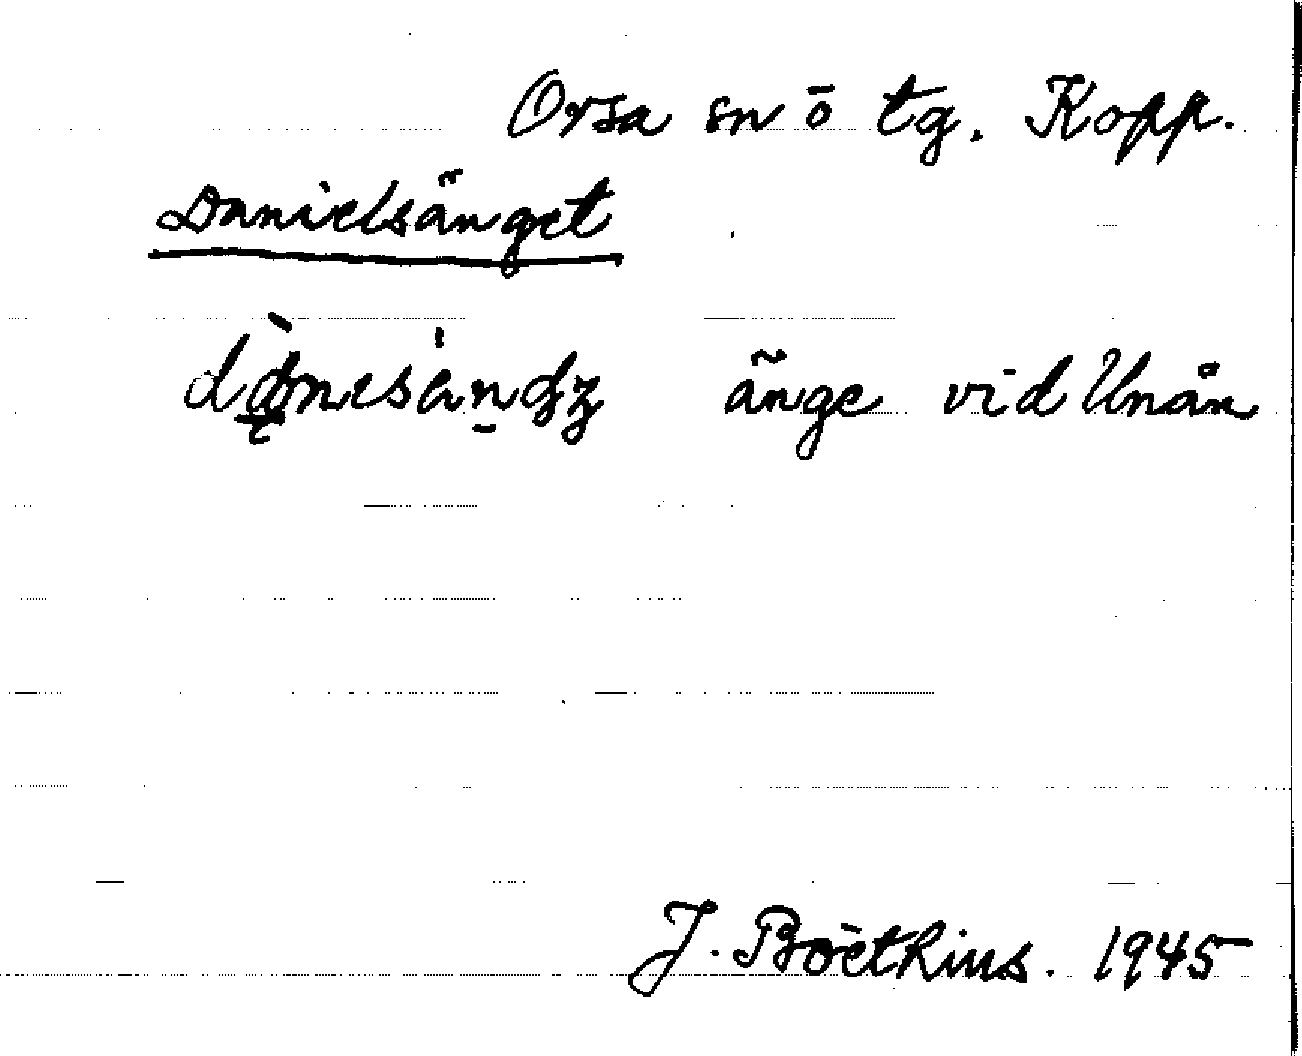 Orsa sn o tg. Kopp.
Danielsänget
änge vid Unån
J. Boëthius. 1945